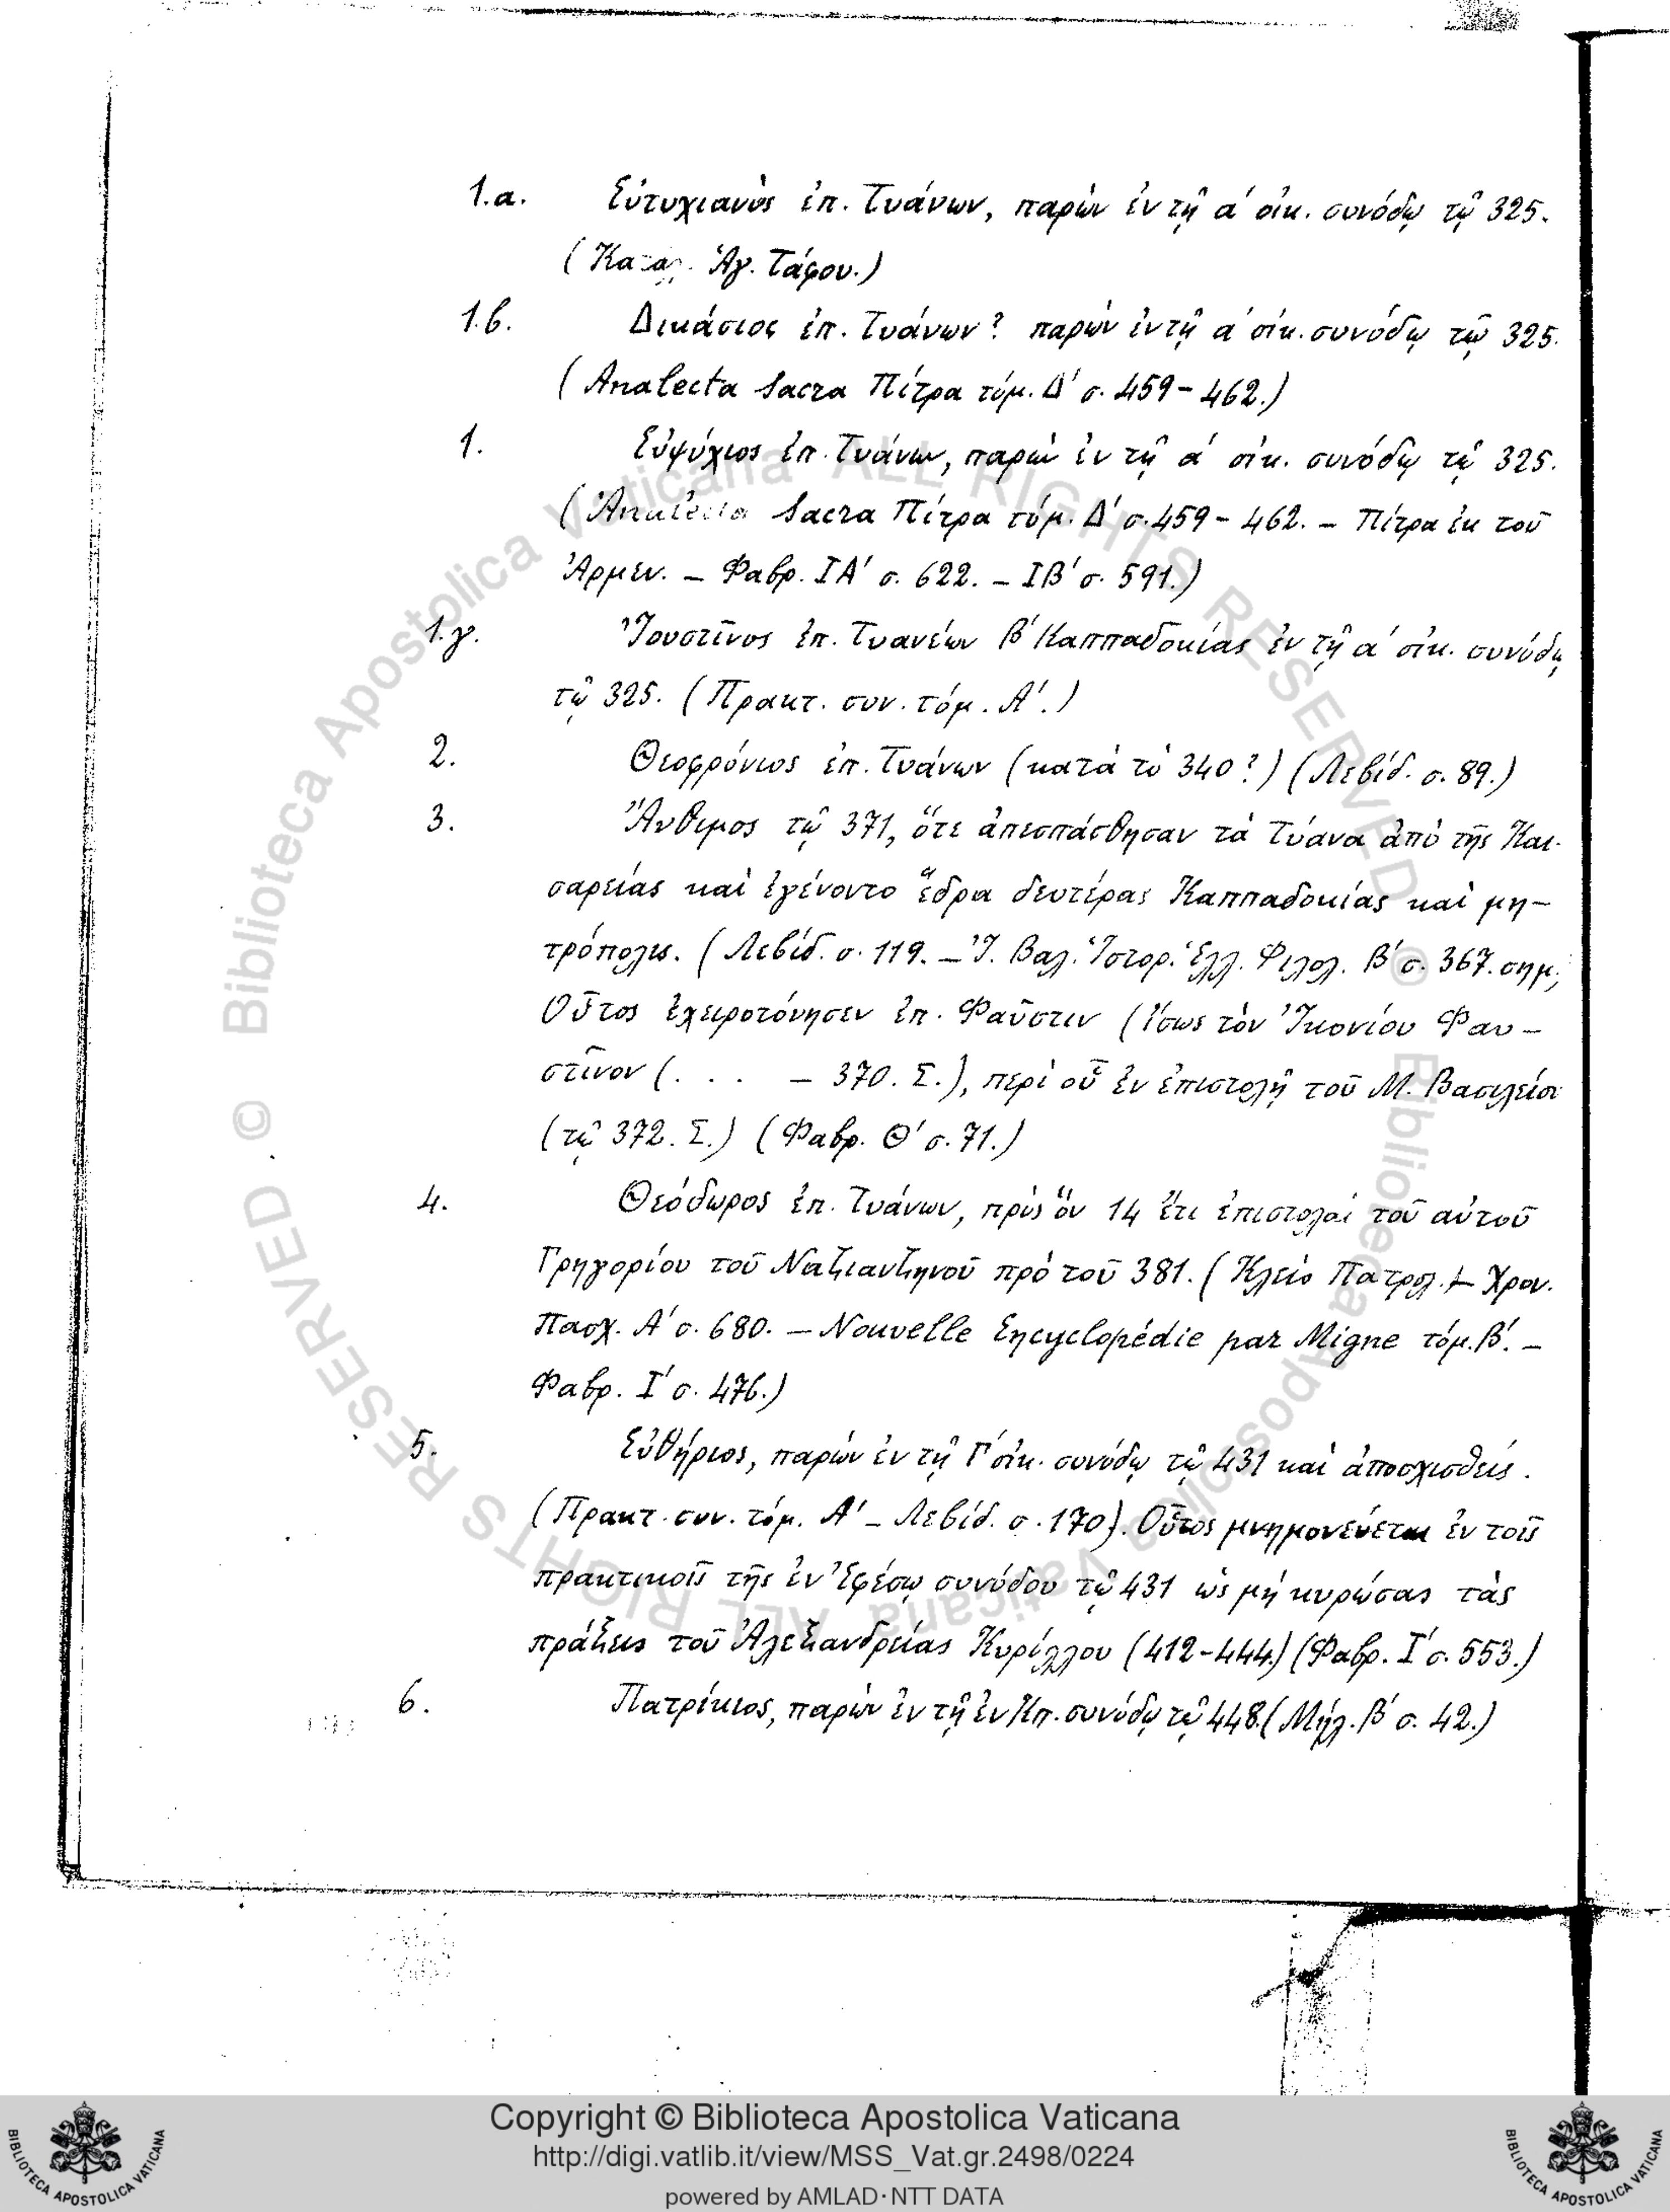 1.α. Εὐτυχιανὸς ἐπ. Τυάνων, παρὼν ἐν τῇ α΄ οἰκ. συνόδῳ τῷ 325.
( Ἁγ. Τάφου.)
1.β. Δικάσιος ἐπ. Τυάνων? παρὼν ἐν τῇ α΄ οἰκ. συνόδῳ τῷ 325.
(Analecta Sacra Πίτρα τόμ. Δ΄ σ. 459-462.)
1. Εὐψύχιος ἐπ. Τυάνων, παρὼν ἐν τῇ α΄ οἰκ. συνόδῳ τῷ 325.
(Analecta Sacra Πίτρα τόμ. Δ΄ σ. 459-462. – Πίτρα ἐκ τοῦ
Ἀρμεν. – Φαβρ. ΙΑ΄ σ. 622. – ΙΒ΄ σ. 591.)
1.γ. Ἰουστῖνος ἐπ. Τυανέων Β΄ Καππαδοκίας ἐν τῇ α΄ οἰκ. συνόδῳ
τῷ 325. (Πρακτ. συν. τόμ. Α΄.)
2. Θεοφρόνιος ἐπ. Τυάνων (κατὰ τὸ 340?) (Λεβίδ. σ. 89.)
3. Ἄνθιμος τῷ 371, ὅτε ἀπεσπάσθησαν τὰ Τύανα ἀπὸ τῆς Και-
σαρείας καὶ ἐγένοντο ἕδρα δευτέρας Καππαδοκίας καὶ μη-
τρόπολις. (Λεβίδ. σ. 119. – Ἰ. Βαλ. Ἱστορ. Ἑλλ. Φιλολ. Β΄ σ. 367. σημ.
Οὗτος ἐχειροτόνησεν ἐπ. Φαῦστιν (ἴσως τὸν Ἰκονίου Φαυ-
στῖνον (. . . – 370. Σ.), περὶ οὗ ἐν ἐπιστολῇ τοῦ Μ. Βασιλείου
(τῷ 372. Σ.) (Φαβρ. Θ΄ σ. 71.)
4. Θεόδωρος ἐπ. Τυάνων, πρὸς ὃν 14 ἔτι ἐπιστολαὶ τοῦ αὐτοῦ
Γρηγορίου τοῦ Ναζιανζηνοῦ πρὸ τοῦ 381. (Κλεὶς Πατρολ. – Χρον.
Πασχ. Α΄ σ. 680. – Nouvelle Encyclopédie par Migne τόμ. Β΄. –
Φαβρ. Ι΄ σ. 476.)
5. Εὐθήριος, παρὼν ἐν τῇ Γ΄ οἰκ. συνόδῳ τῷ 431 καὶ ἀποσχισθείς.
(Πρακτ. συν. τόμ. Α΄ – Λεβίδ. σ. 170). Οὗτος μνημονεύεται ἐν τοῖς
πρακτικοῖς τῆς ἐν Ἐφέσῳ συνόδου τῷ 431 ὡς μὴ κυρώσας τὰς
πράξεις τοῦ Ἀλεξανδρείας Κυρίλλου (412-444.) (Φαβρ. Ι΄ σ. 553.)
6. Πατρίκιος, παρὼν ἐν τῇ ἐν Κπ. συνόδῳ τῷ 448. (Μήλ. Β΄ σ. 42.)
© Biblioteca Apostolica Vaticana ALL RIGHTS RESERVED © Biblioteca Apostolica Vaticana ALL RIGHTS RESERVED
Copyright © Biblioteca Apostolica Vaticana
http://digi.vatlib.it/view/MSS_Vat.gr.2498/0224
powered by AMLAD·NTT DATA
BIBLIOTECA APOSTOLICA VATICANA
BIBLIOTECA APOSTOLICA VATICANA